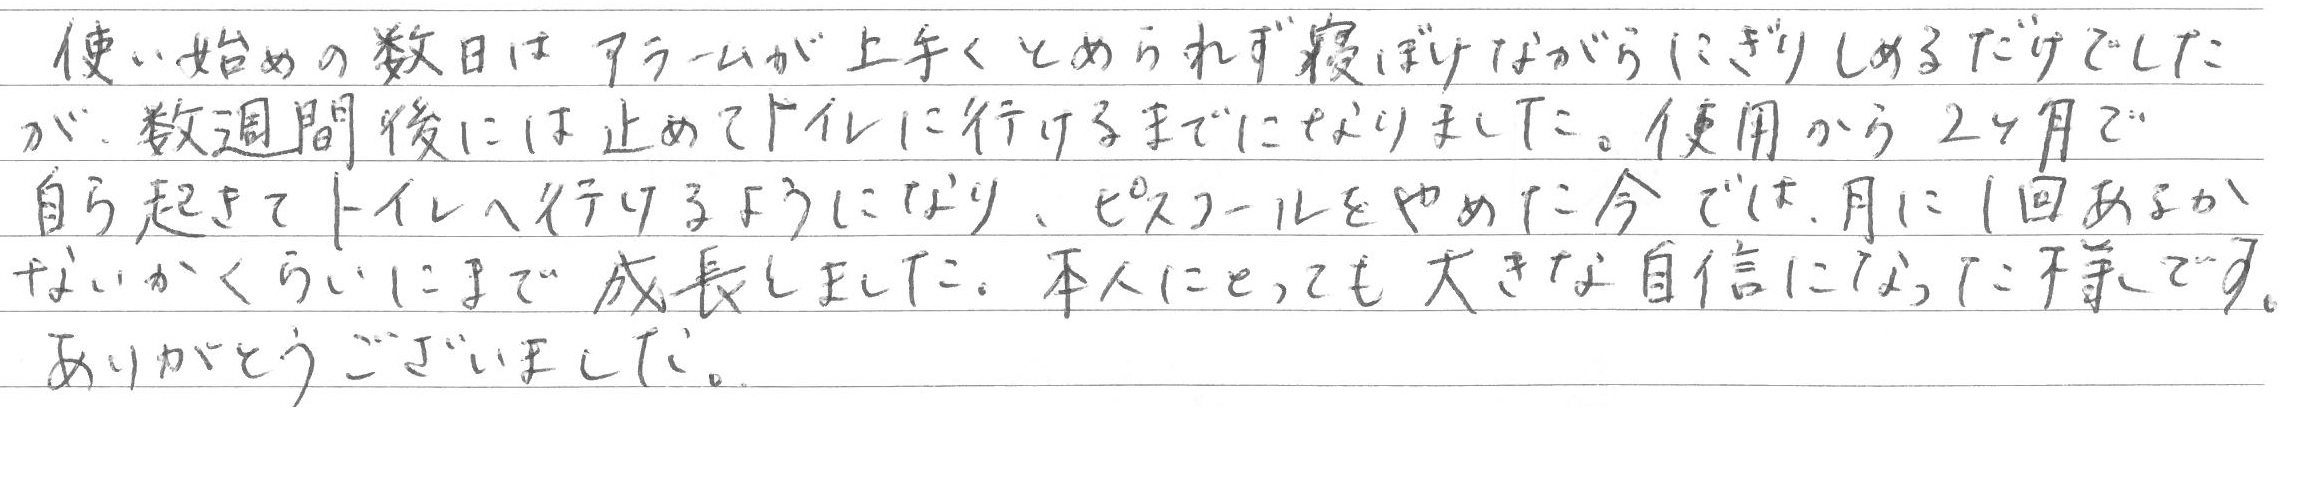 使い始めの数日はアラームが上手くとめられず寝ぼけながらにぎりしめるだけでした
が、数週間後には止めてトイレに行けるまでになりました。使用から2ヶ月で
自ら起きてトイレへ行けるようになり、ピスコールをやめた今では、月に1回あるか
ないかくらいにまで成長しました。本人にとっても大きな自信になった様です。
ありがとうございました。